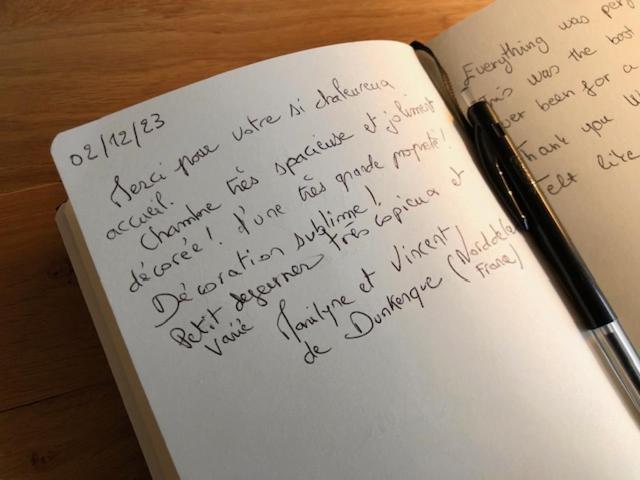 02/12/23
Merci pour votre si chaleureux
accueil.
Chambre très spacieuse et joliment
décorée! d'une très grande propreté!
Décoration sublime!
Petit dejeuner très copieux et
varié
Marilyne et Vincent
de Dunkerque (Nord de la
France)
Everything was per
This was the best
ver been for a
Thank you W
felt like